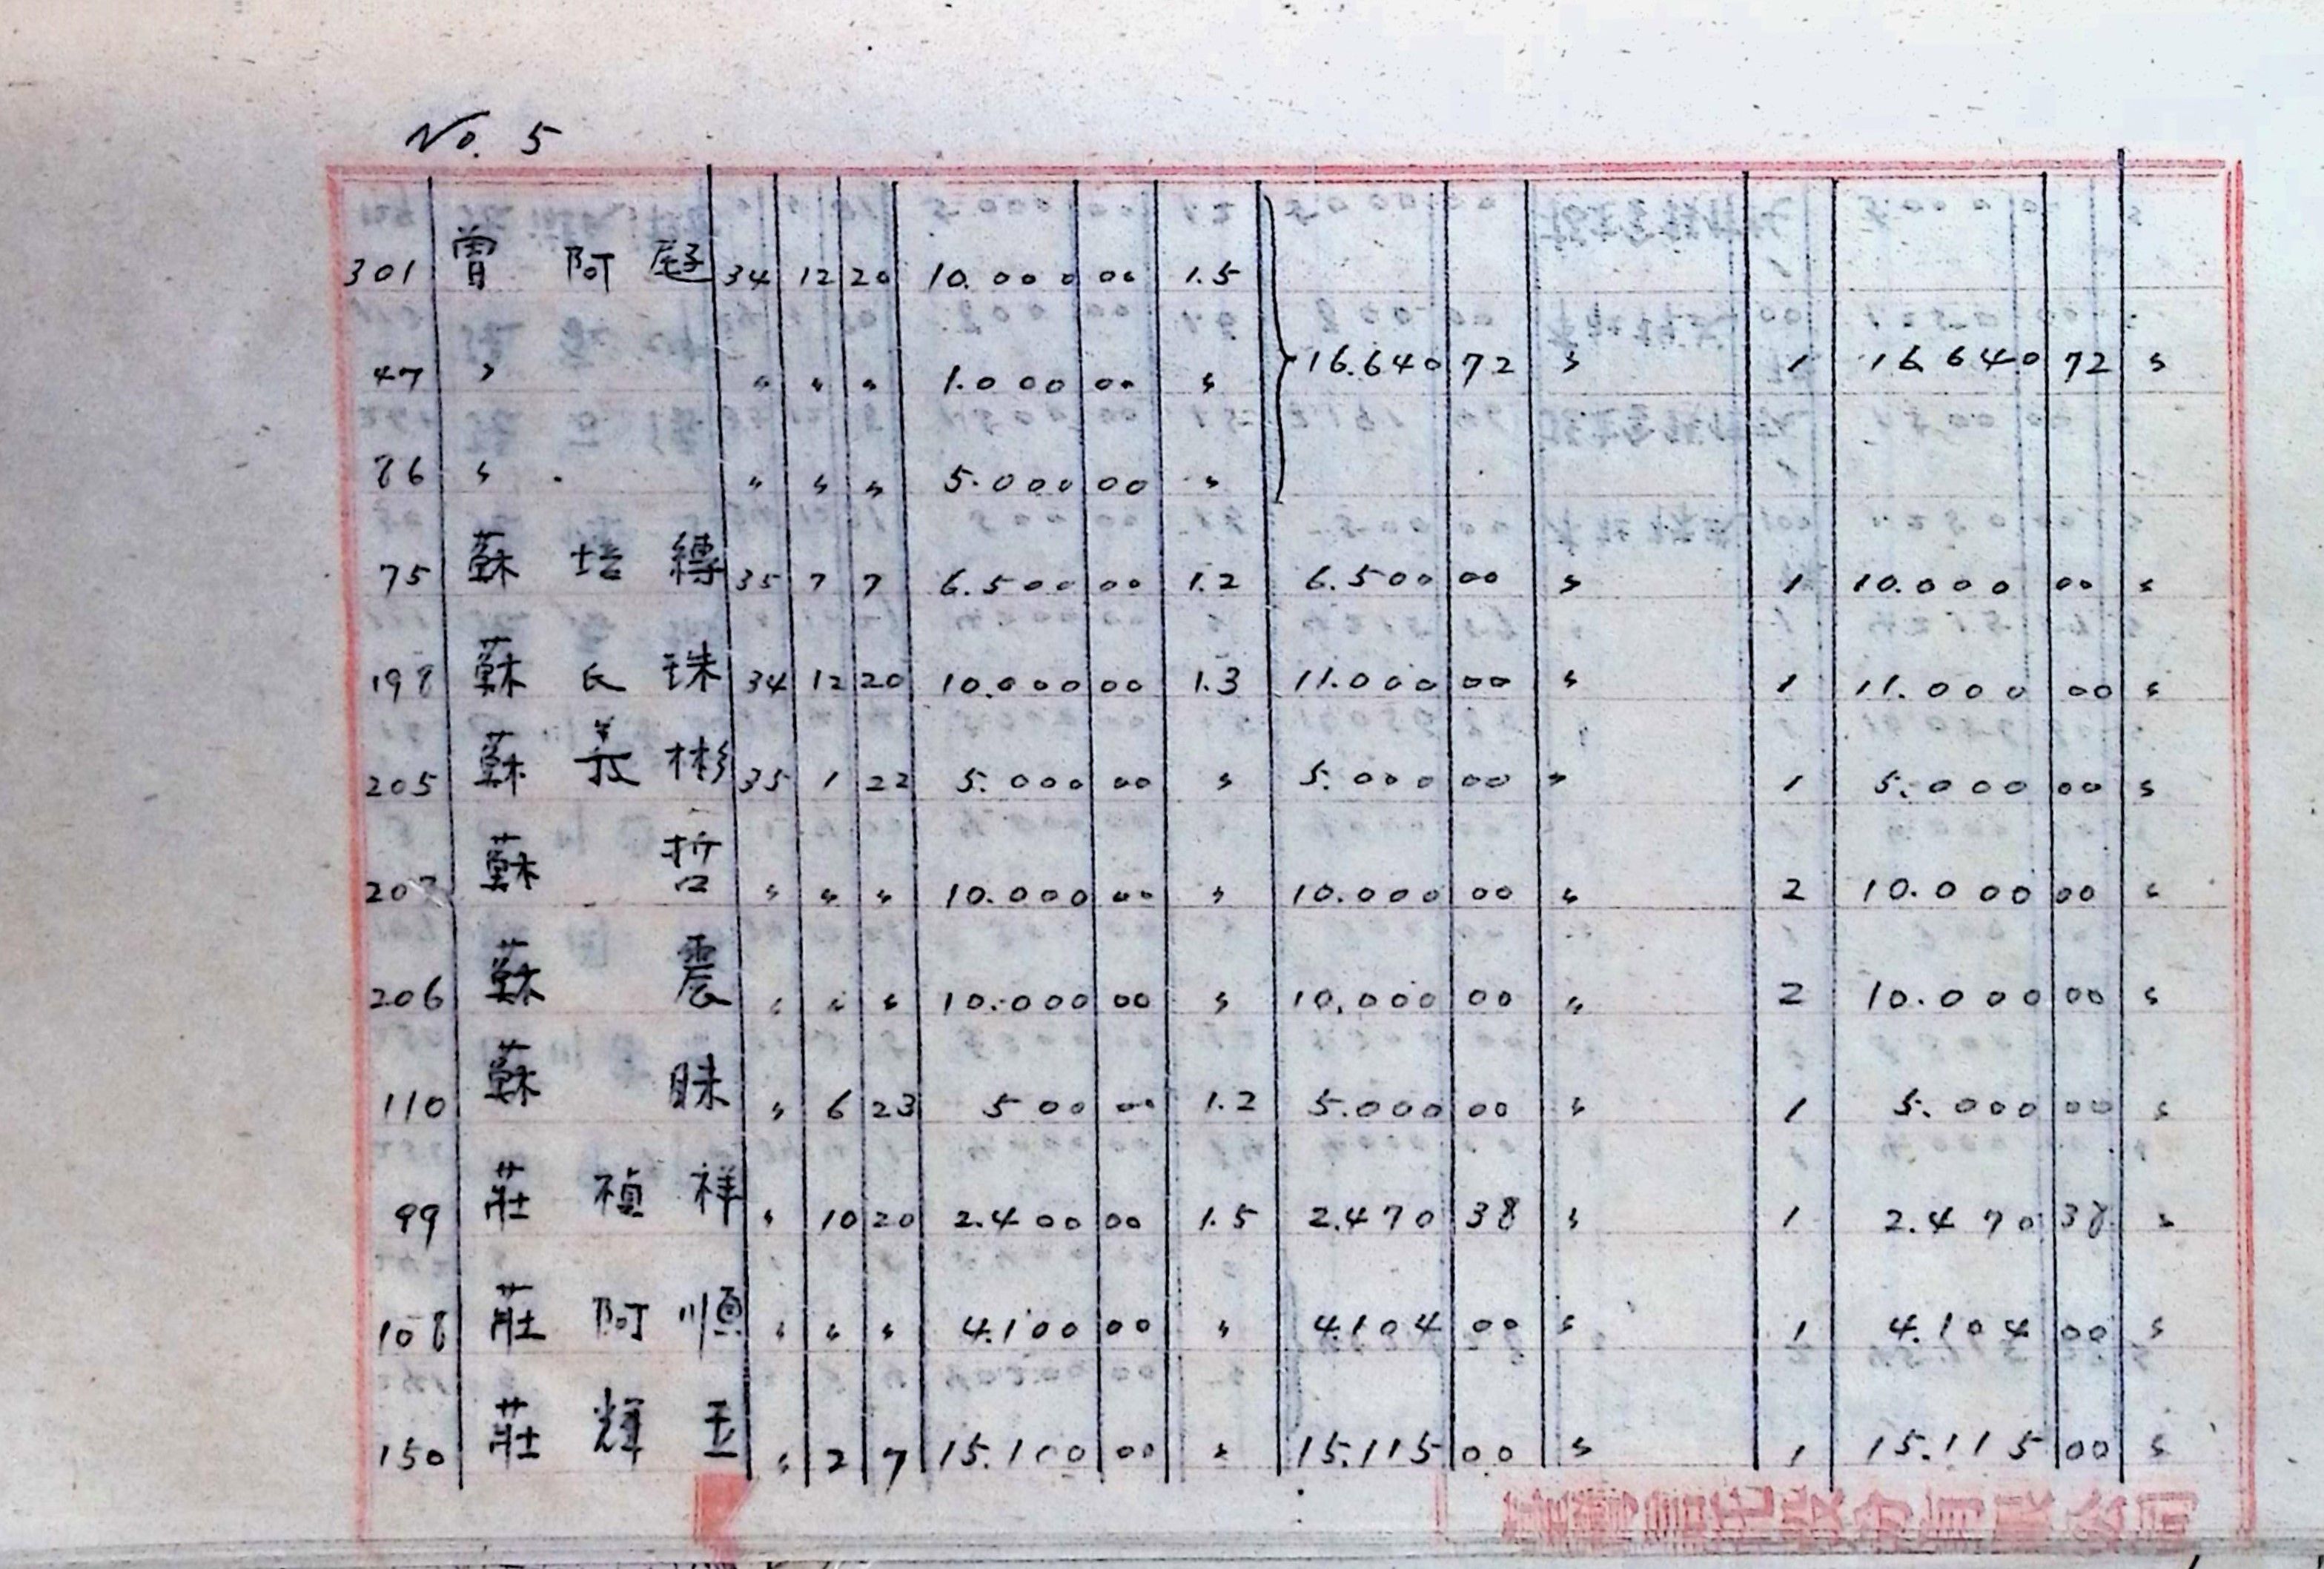 No. 5
301 曾阿 34 12 20 10.000 00 1.5
47 〃 〃 〃 〃 1.000 00 〃 16.640 72 〃 1 16.640 72 〃
86 〃 〃 〃 〃 5.000 00 〃
75 蘇培 35 7 7 6.500 00 1.2 6.500 00 〃 1 10.000 00 〃
198 蘇氏珠 34 12 20 10.000 00 1.3 11.000 00 〃 1 11.000 00 〃
205 蘇義彬 35 1 22 5.000 00 〃 5.000 00 〃 1 5.000 00 〃
蘇哲 〃 〃 〃 10.000 00 〃 10.000 00 〃 2 10.000 00 〃
206 蘇震 〃 〃 〃 10.000 00 〃 10.000 00 〃 2 10.000 00 〃
110 蘇 〃 6 23 500 00 1.2 5.000 00 〃 1 5.000 00 〃
99 莊禎祥 〃 10 20 2.400 00 1.5 2.470 38 〃 1 2.470 38 〃
108 莊阿順 〃 〃 〃 4.100 00 〃 4.104 00 〃 1 4.104 00 〃
150 莊輝玉 〃 2 7 15.100 00 〃 15.115 00 〃 1 15.115 00 〃